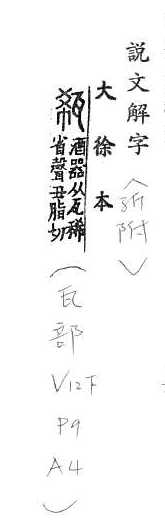 説文解字〈新附〉
大徐本
瓻
酒器从瓦稀
省聲丑脂切
(瓦部 V12下 P9 A4)